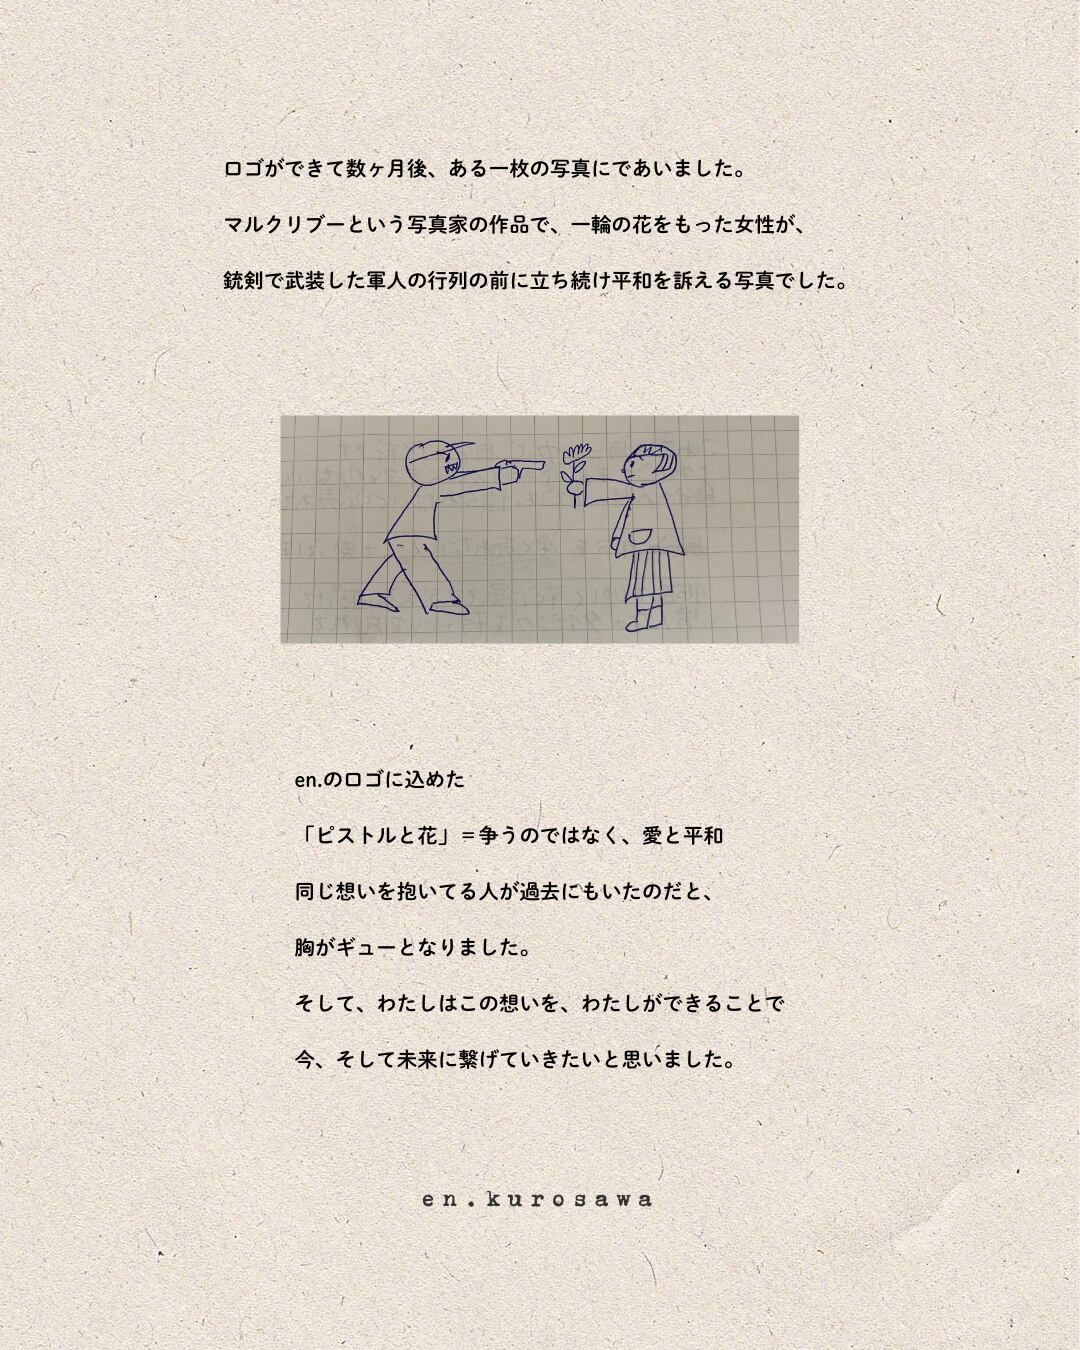 ロゴができて数ヶ月後、ある一枚の写真にであいました。
マルクリブーという写真家の作品で、一輪の花をもった女性が、
銃剣で武装した軍人の行列の前に立ち続け平和を訴える写真でした。
en.のロゴに込めた
「ピストルと花」＝争うのではなく、愛と平和
同じ想いを抱いてる人が過去にもいたのだと、
胸がギューとなりました。
そして、わたしはこの想いを、わたしができることで
今、そして未来に繋げていきたいと思いました。
en.kurosawa